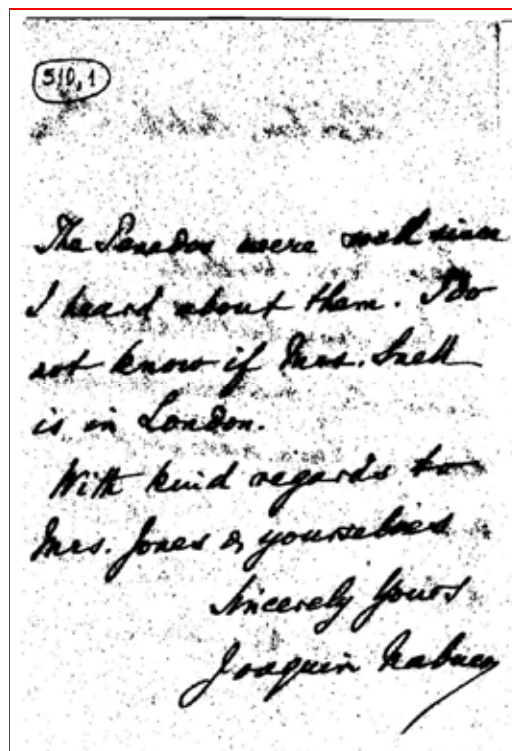 510,1
The Penedos were well since
I heard about them. I do
not know if Mrs. Snell
is in London.
With kind regards to
Mrs. Jones & yourselves
Sincerely Yours
Joaquim Nabuco